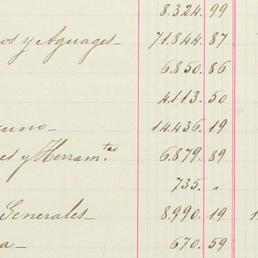 8.324.99
os y Aguages 71.844.87
6.850.86
4.113.50
cuno 14.436.19
es y Herram.tas 6.879.89
735. "
Generales 8.990.19
a 670.59